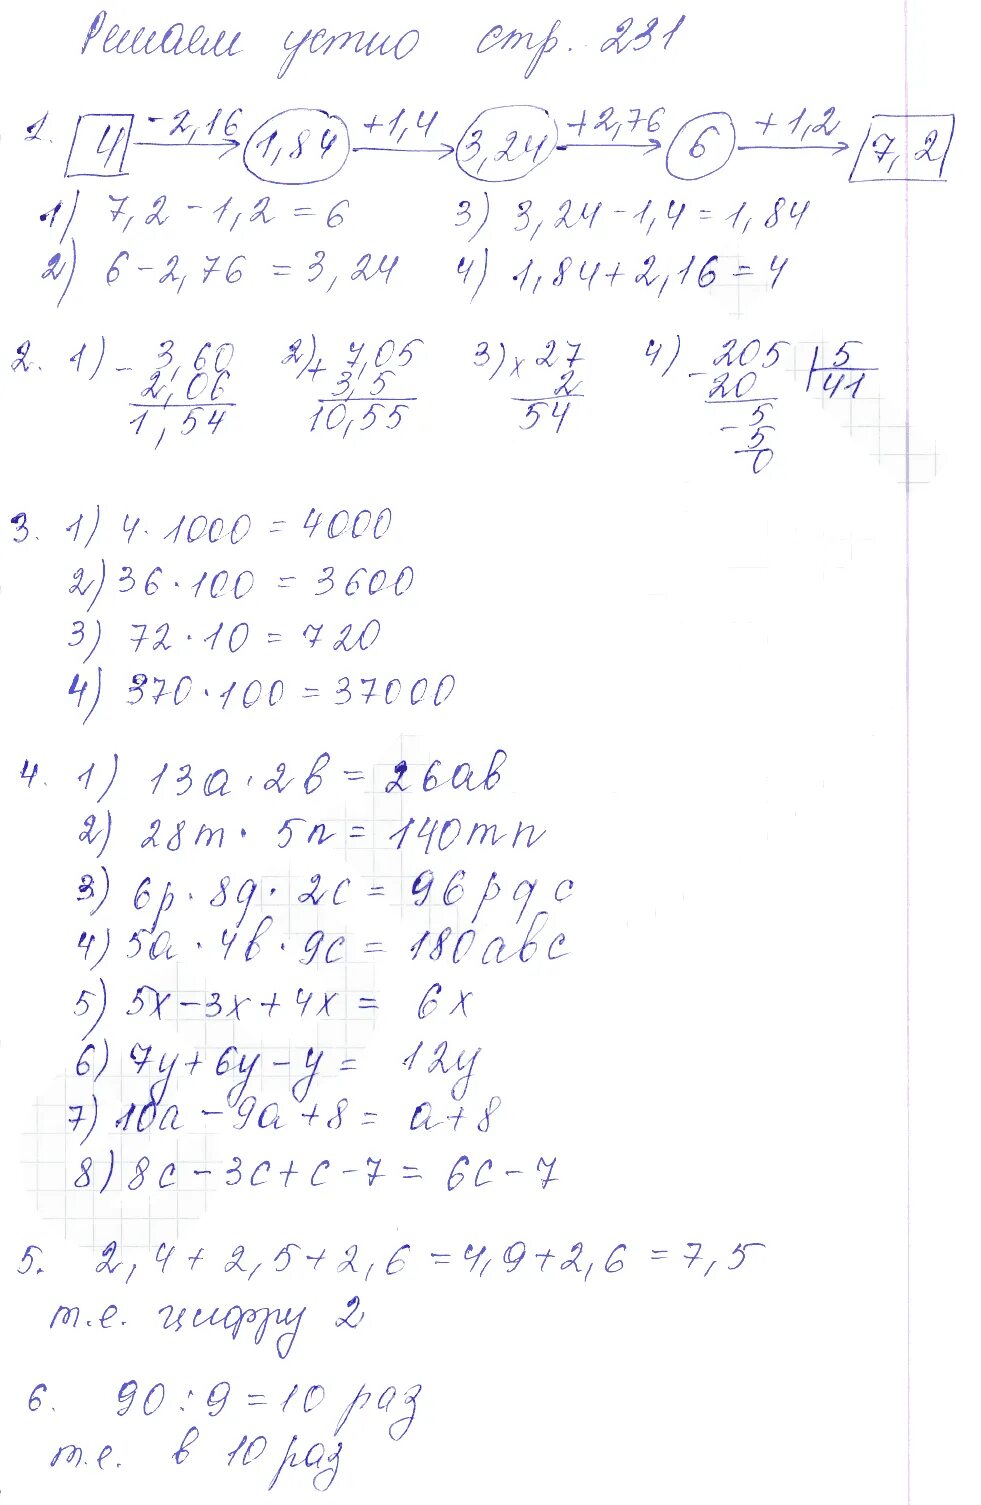 Решаем устно стр. 231
1. 4 -2,16 1,84 +1,4 3,24 +2,76 6 +1,2 7,2
1) 7,2 - 1,2 = 6 3) 3,24 - 1,4 = 1,84
2) 6 - 2,76 = 3,24 4) 1,84 + 2,16 = 4
2. 1) - 3,60 2) + 7,05 3) x 27 4) - 205 5
2,06 3,5 2 20 41
1,54 10,55 54 - 5
5
0
3. 1) 4 · 1000 = 4000
2) 36 · 100 = 3600
3) 72 · 10 = 720
4) 370 · 100 = 37000
4. 1) 13a · 2b = 26ab
2) 28m · 5n = 140mn
3) 6p · 8q · 2c = 96pqc
4) 5a · 4b · 9c = 180abc
5) 5x - 3x + 4x = 6x
6) 7y + 6y - y = 12y
7) 10a - 9a + 8 = a + 8
8) 8c - 3c + c - 7 = 6c - 7
5. 2,4 + 2,5 + 2,6 = 4,9 + 2,6 = 7,5
т.е. цифру 2
6. 90 : 9 = 10 раз
т.е. в 10 раз